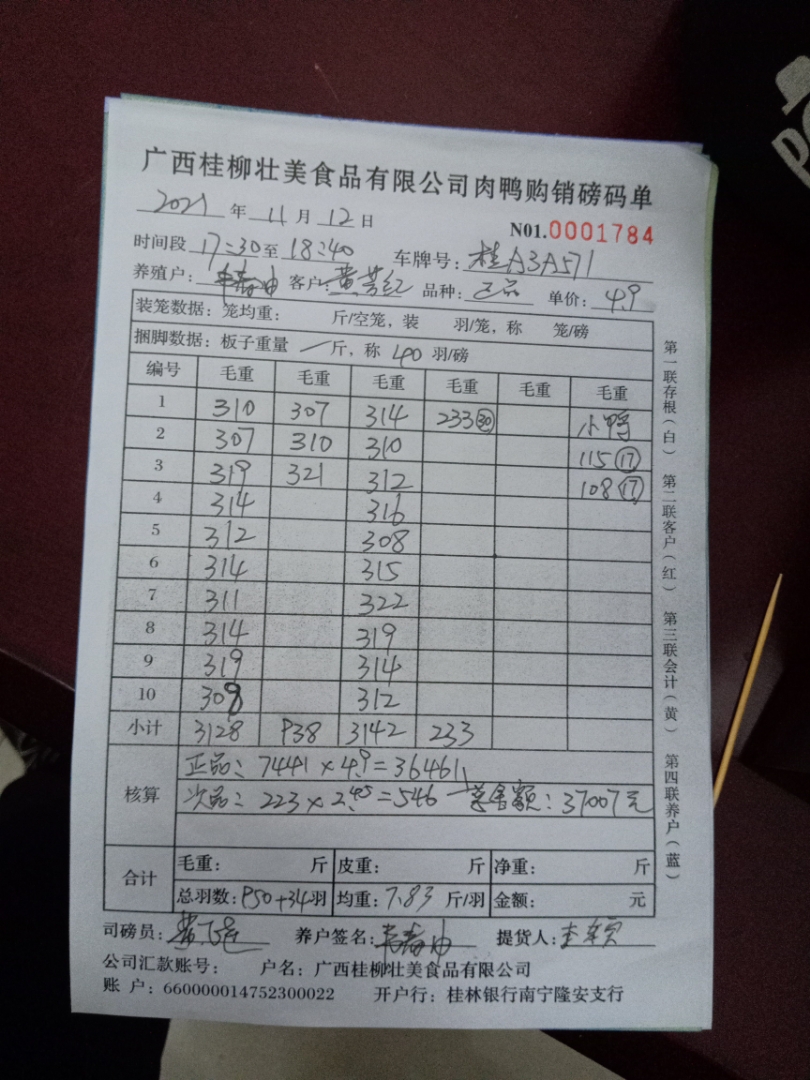 广西桂柳壮美食品有限公司肉鸭购销磅码单
2021 年 11 月 12 日
N01.0001784
时间段 17:30 至 18:40 车牌号: 桂A3A571
养殖户: 客户: 黄芳红 品种: 正品 单价: 4.9
装笼数据: 笼均重: 斤/空笼, 装 羽/笼, 称 笼/磅
捆脚数据: 板子重量 / 斤, 称 40 羽/磅
编号 毛重 毛重 毛重 毛重 毛重 毛重
1 310 307 314 233㉚ 小鸭
2 307 310 310 115⑰
3 319 321 312 108⑰
4 314 316
5 312 308
6 314 315
7 311 322
8 314 319
9 319 314
10 308 312
小计 3128 938 3142 233
核算
正品: 7441×4.9=36461
次品: 223×2.45=546 总金额: 37007元
合计
毛重: 斤 皮重: 斤 净重: 斤
总羽数: 950+34羽 均重: 7.83 斤/羽 金额: 元
司磅员: 养户签名: 提货人:
公司汇款账号: 户名: 广西桂柳壮美食品有限公司
账 户: 660000014752300022 开户行: 桂林银行南宁隆安支行
第一联存根(白) 第二联客户(红) 第三联会计(黄) 第四联养户(蓝)